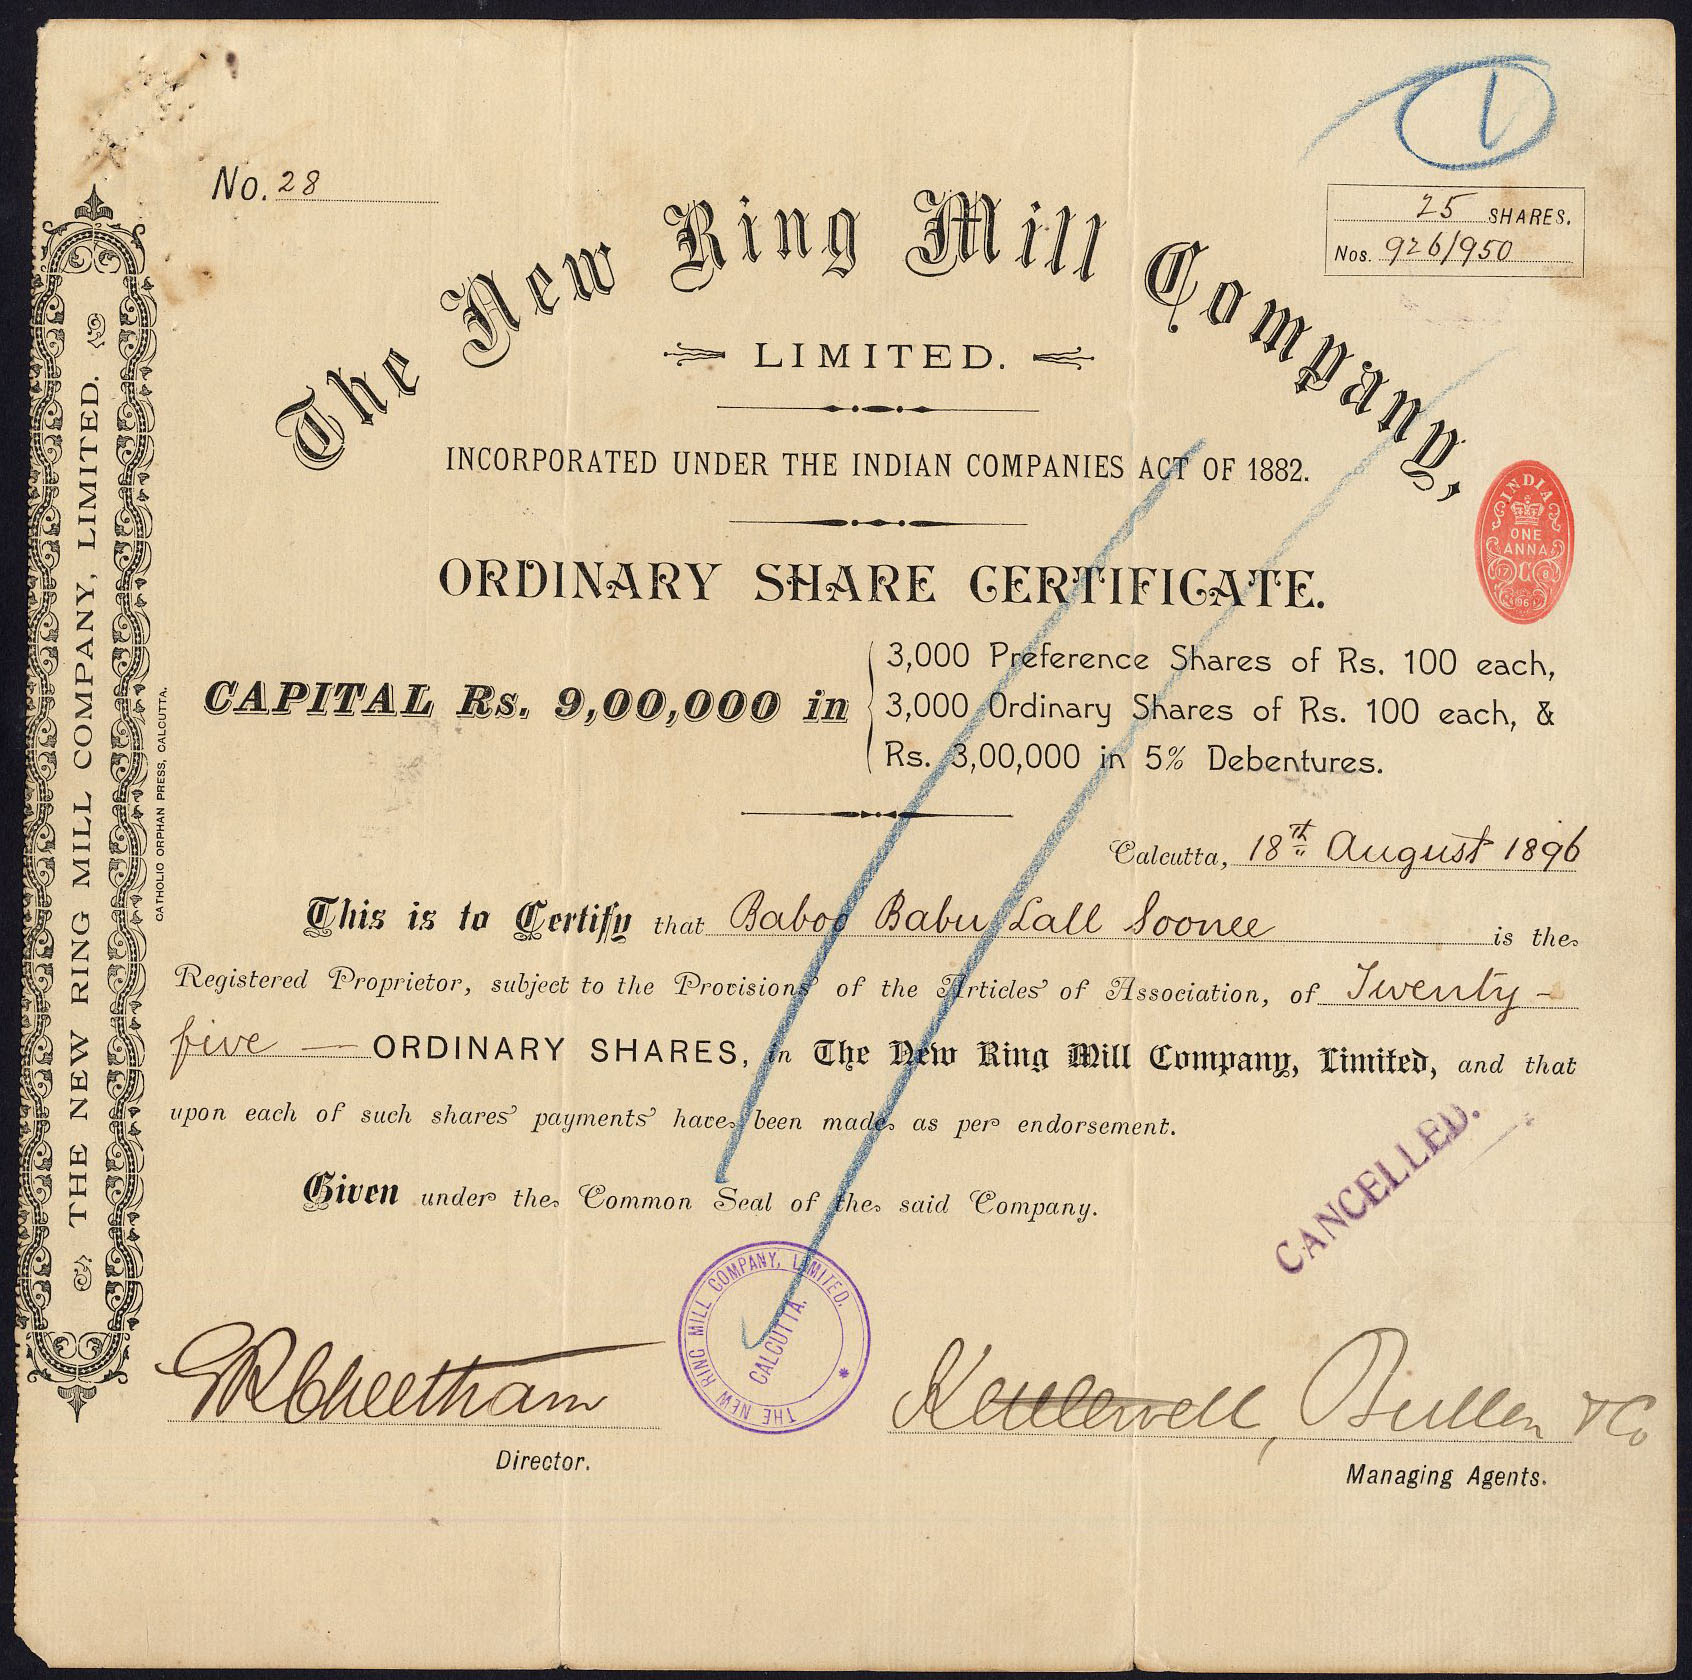 1
No. 28
25 SHARES.
Nos. 926/950
The New Ring Mill Company,
LIMITED.
INCORPORATED UNDER THE INDIAN COMPANIES ACT OF 1882.
INDIA
ONE
ANNA
ORDINARY SHARE CERTIFICATE.
CAPITAL Rs. 9,00,000 in
3,000 Preference Shares of Rs. 100 each,
3,000 Ordinary Shares of Rs. 100 each, &
Rs. 3,00,000 in 5% Debentures.
Calcutta, 18th August 1896
This is to Certify that Baboo Babu Lall Soonee is the
Registered Proprietor, subject to the Provisions of the Articles of Association, of Twenty-
five — ORDINARY SHARES, in The New Ring Mill Company, Limited, and that
upon each of such shares payments have been made as per endorsement.
Given under the Common Seal of the said Company.
CANCELLED.
THE NEW RING MILL COMPANY, LIMITED.
CALCUTTA.
Cheetham
Director.
Kettlewell, Bullen & Co
Managing Agents.
THE NEW RING MILL COMPANY, LIMITED.
CATHOLIC ORPHAN PRESS, CALCUTTA.